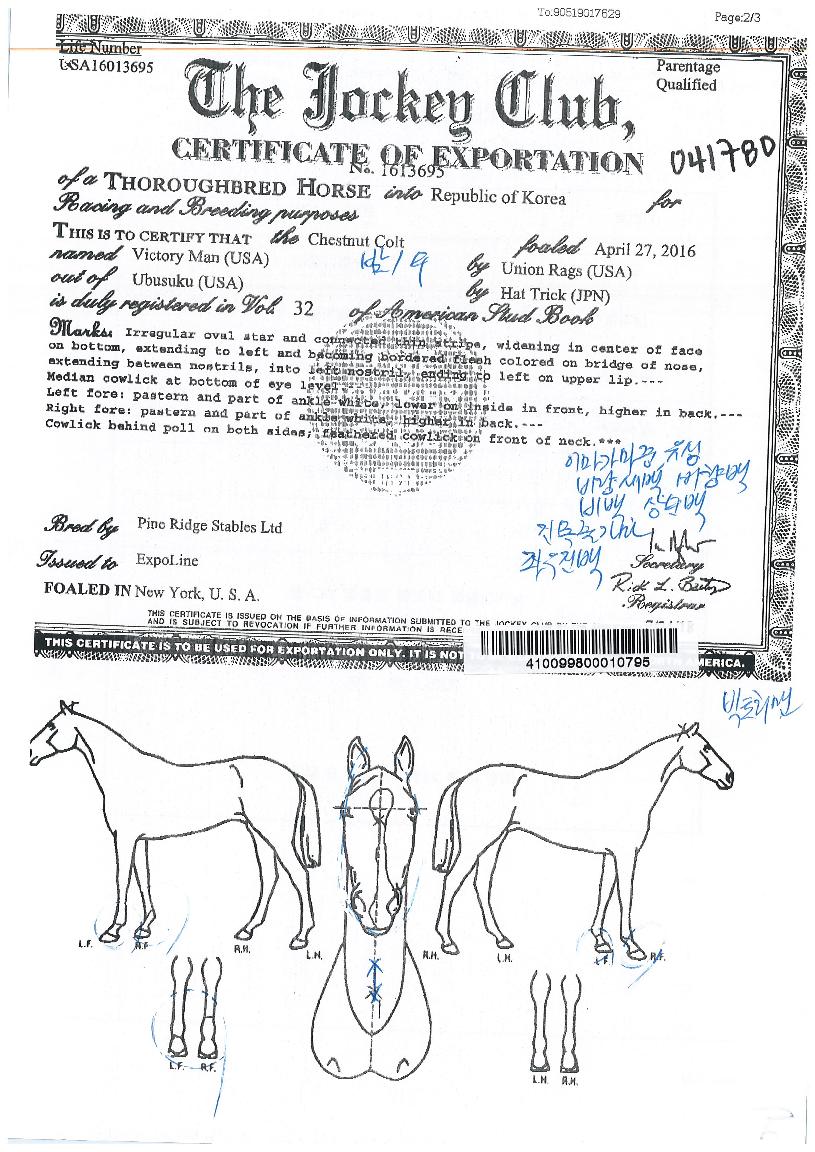 To:90519017629 Page:2/3
Life Number
USA16013695
Parentage
Qualified
The Jockey Club,
CERTIFICATE OF EXPORTATION
No. 1613695
041780
of a THOROUGHBRED HORSE into Republic of Korea for
Racing and Breeding purposes
THIS IS TO CERTIFY THAT the Chestnut Colt foaled April 27, 2016
named Victory Man (USA) by Union Rags (USA)
out of Ubusuku (USA) by Hat Trick (JPN)
is duly registered in Vol. 32 of American Stud Book
Marks: Irregular oval star and connected thin stripe, widening in center of face
on bottom, extending to left and becoming bordered flesh colored on bridge of nose,
extending between nostrils, into left nostril, ending to left on upper lip.---
Median cowlick at bottom of eye level.---
Left fore: pastern and part of ankle white, lower on inside in front, higher in back.---
Right fore: pastern and part of ankle white, higher in back.---
Cowlick behind poll on both sides; feathered cowlick on front of neck.***
Bred by Pine Ridge Stables Ltd
Issued to ExpoLine
Secretary
FOALED IN New York, U. S. A.
Registrar
THIS CERTIFICATE IS ISSUED ON THE BASIS OF INFORMATION SUBMITTED TO THE JOCKEY CLUB
AND IS SUBJECT TO REVOCATION IF FURTHER INFORMATION IS RECE
THIS CERTIFICATE IS TO BE USED FOR EXPORTATION ONLY. IT IS NOT AMERICA.
410099800010795
빅토리맨
L.F. R.F. R.H. L.H. R.H. L.H. L.F. R.F.
L.F. R.F. L.H. R.H.